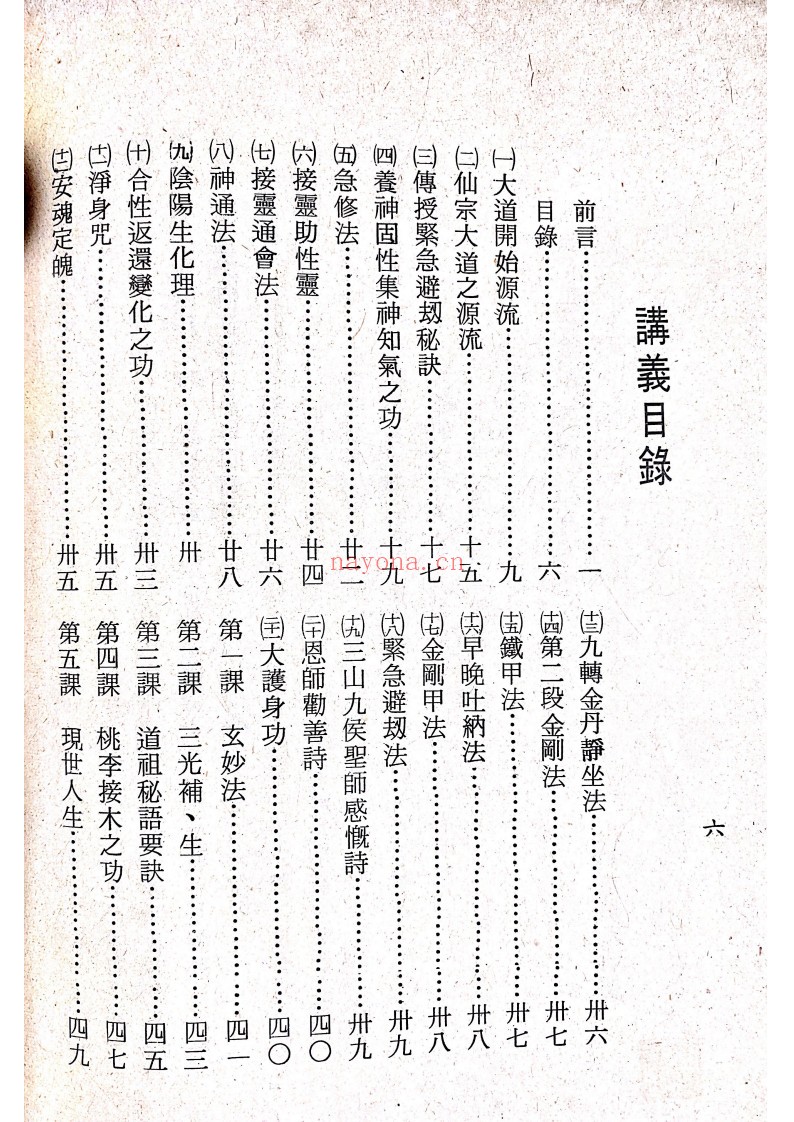 講義目錄
前言……一
目錄……六
㈠大道開始源流……九
㈡仙宗大道之源流……十五
㈢傳授緊急避刼秘訣……十七
㈣養神固性集神知氣之功……十九
㈤急修法……廿二
㈥接靈助性靈……廿四
㈦接靈通會法……廿六
㈧神通法……廿八
㈨陰陽生化理……卅
㈩合性返還變化之功……卅三
(十一)淨身咒……卅五
(十二)安魂定魄……卅五
(十三)九轉金丹靜坐法……卅六
(十四)第二段金剛法……卅七
(十五)鐵甲法……卅七
(十六)早晚吐納法……卅八
(十七)金剛甲法……卅八
(十八)緊急避刼法……卅九
(十九)三山九侯聖師感慨詩……卅九
(二十)恩師勸善詩……四〇
(二一)大護身功……四〇
第一課 玄妙法……四一
第二課 三光補、生……四三
第三課 道祖秘語要訣……四五
第四課 桃李接木之功……四七
第五課 現世人生……四九
六
nayona.cn